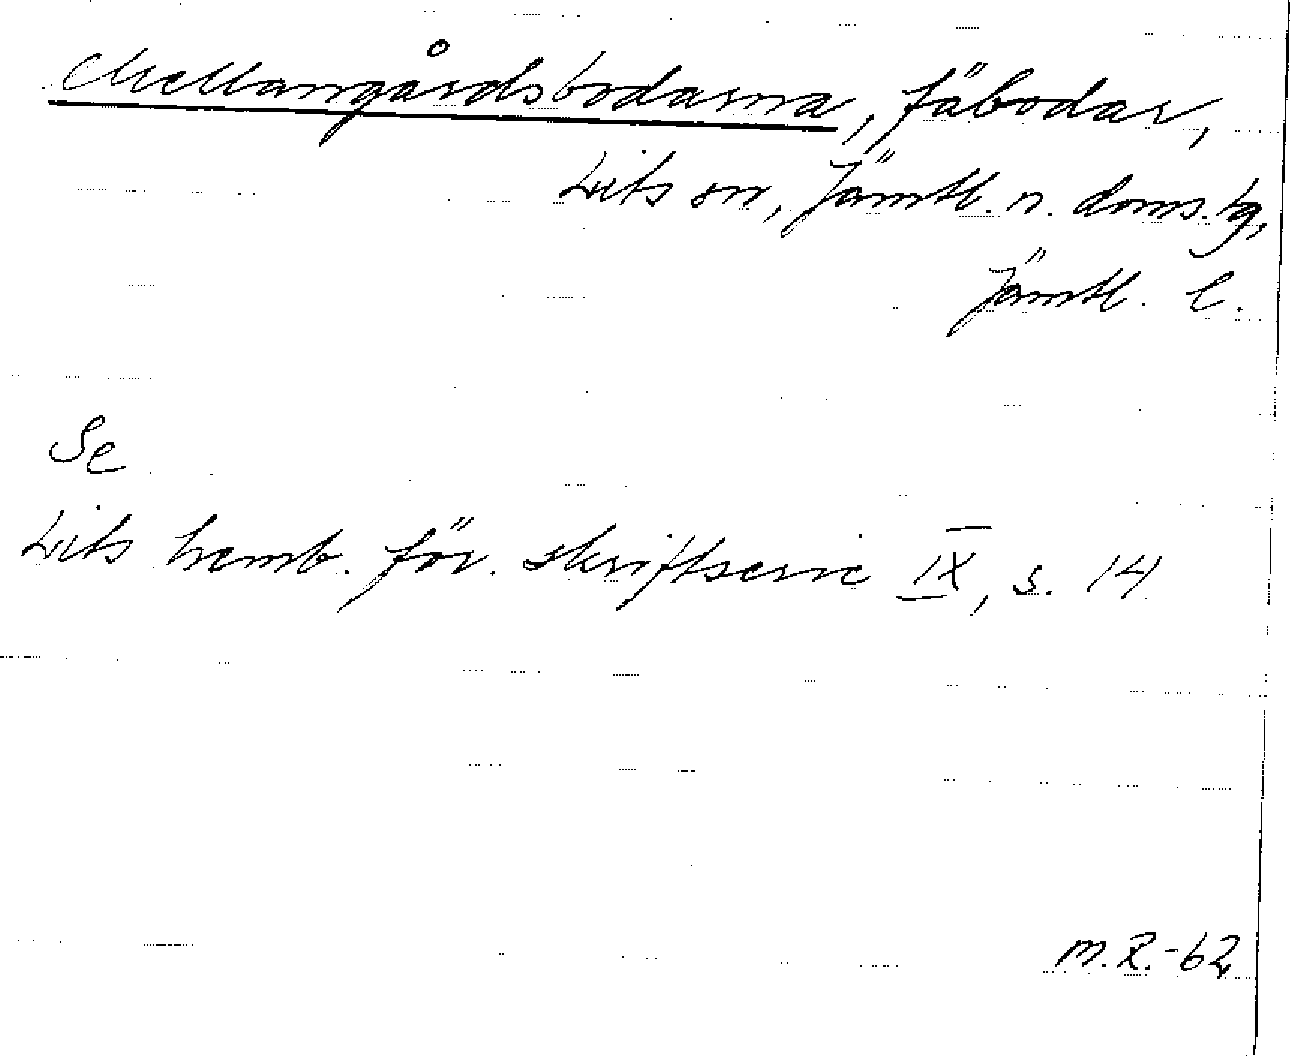 Mellangårdsbodarna, fäbodar,
Lits sn, Jämtl. n. doms.tg,
Jämtl. l.
Se
Lits hemb. för. skriftserie IX, s. 14
M.R.-62